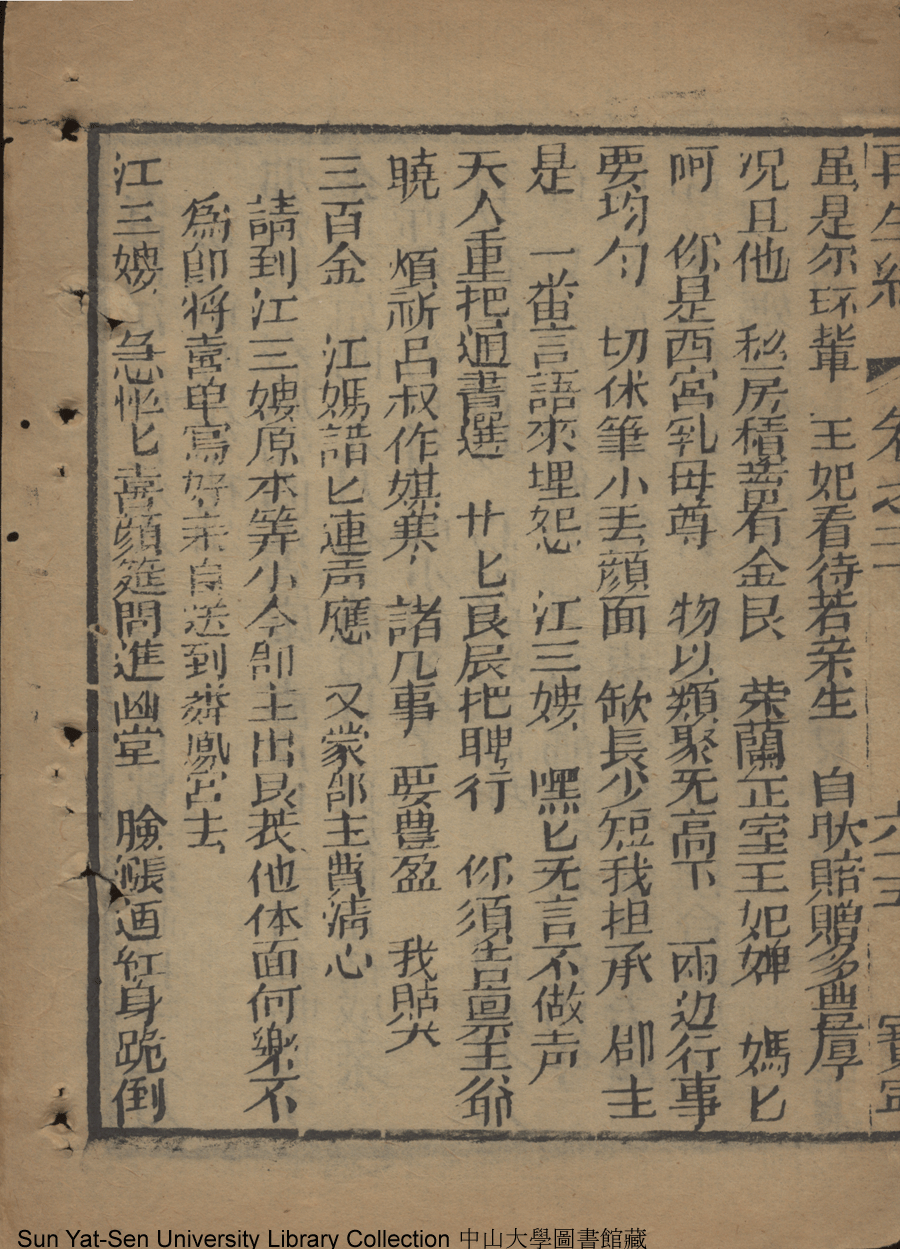 再生緣 卷之三 六十五 寶寧
虽是尔环輩 王妃看待若亲生 自肰賠贈多豊厚
况且他 私房積蓄有金艮 荣蘭正室王妃婢 媽匕
呵 你是西宮乳母尊 物以類聚无高下 両边行事
要均匀 切休筆小丢顔面 缺長少短我担承 郡主
是 一畨言語來埋怨 江三嫂 嘿匕无言不做声
夭人重把通書選 廿匕良辰把聘行 你須告禀王爺
曉 煩祈吕叔作媒寒 諸几事 要豊盈 我貼
三百金 江媽諳匕連声應 又蒙郡主費清心
請到江三嫂原本筭小今郡主出艮裝他体面何樂不
爲即将喜单寫好亲自送到麟鳳宮去
江三嫂 急忙匕喜顔筵問進凶堂 臉漲通紅身跪倒
Sun Yat-Sen University Library Collection 中山大學圖書館藏